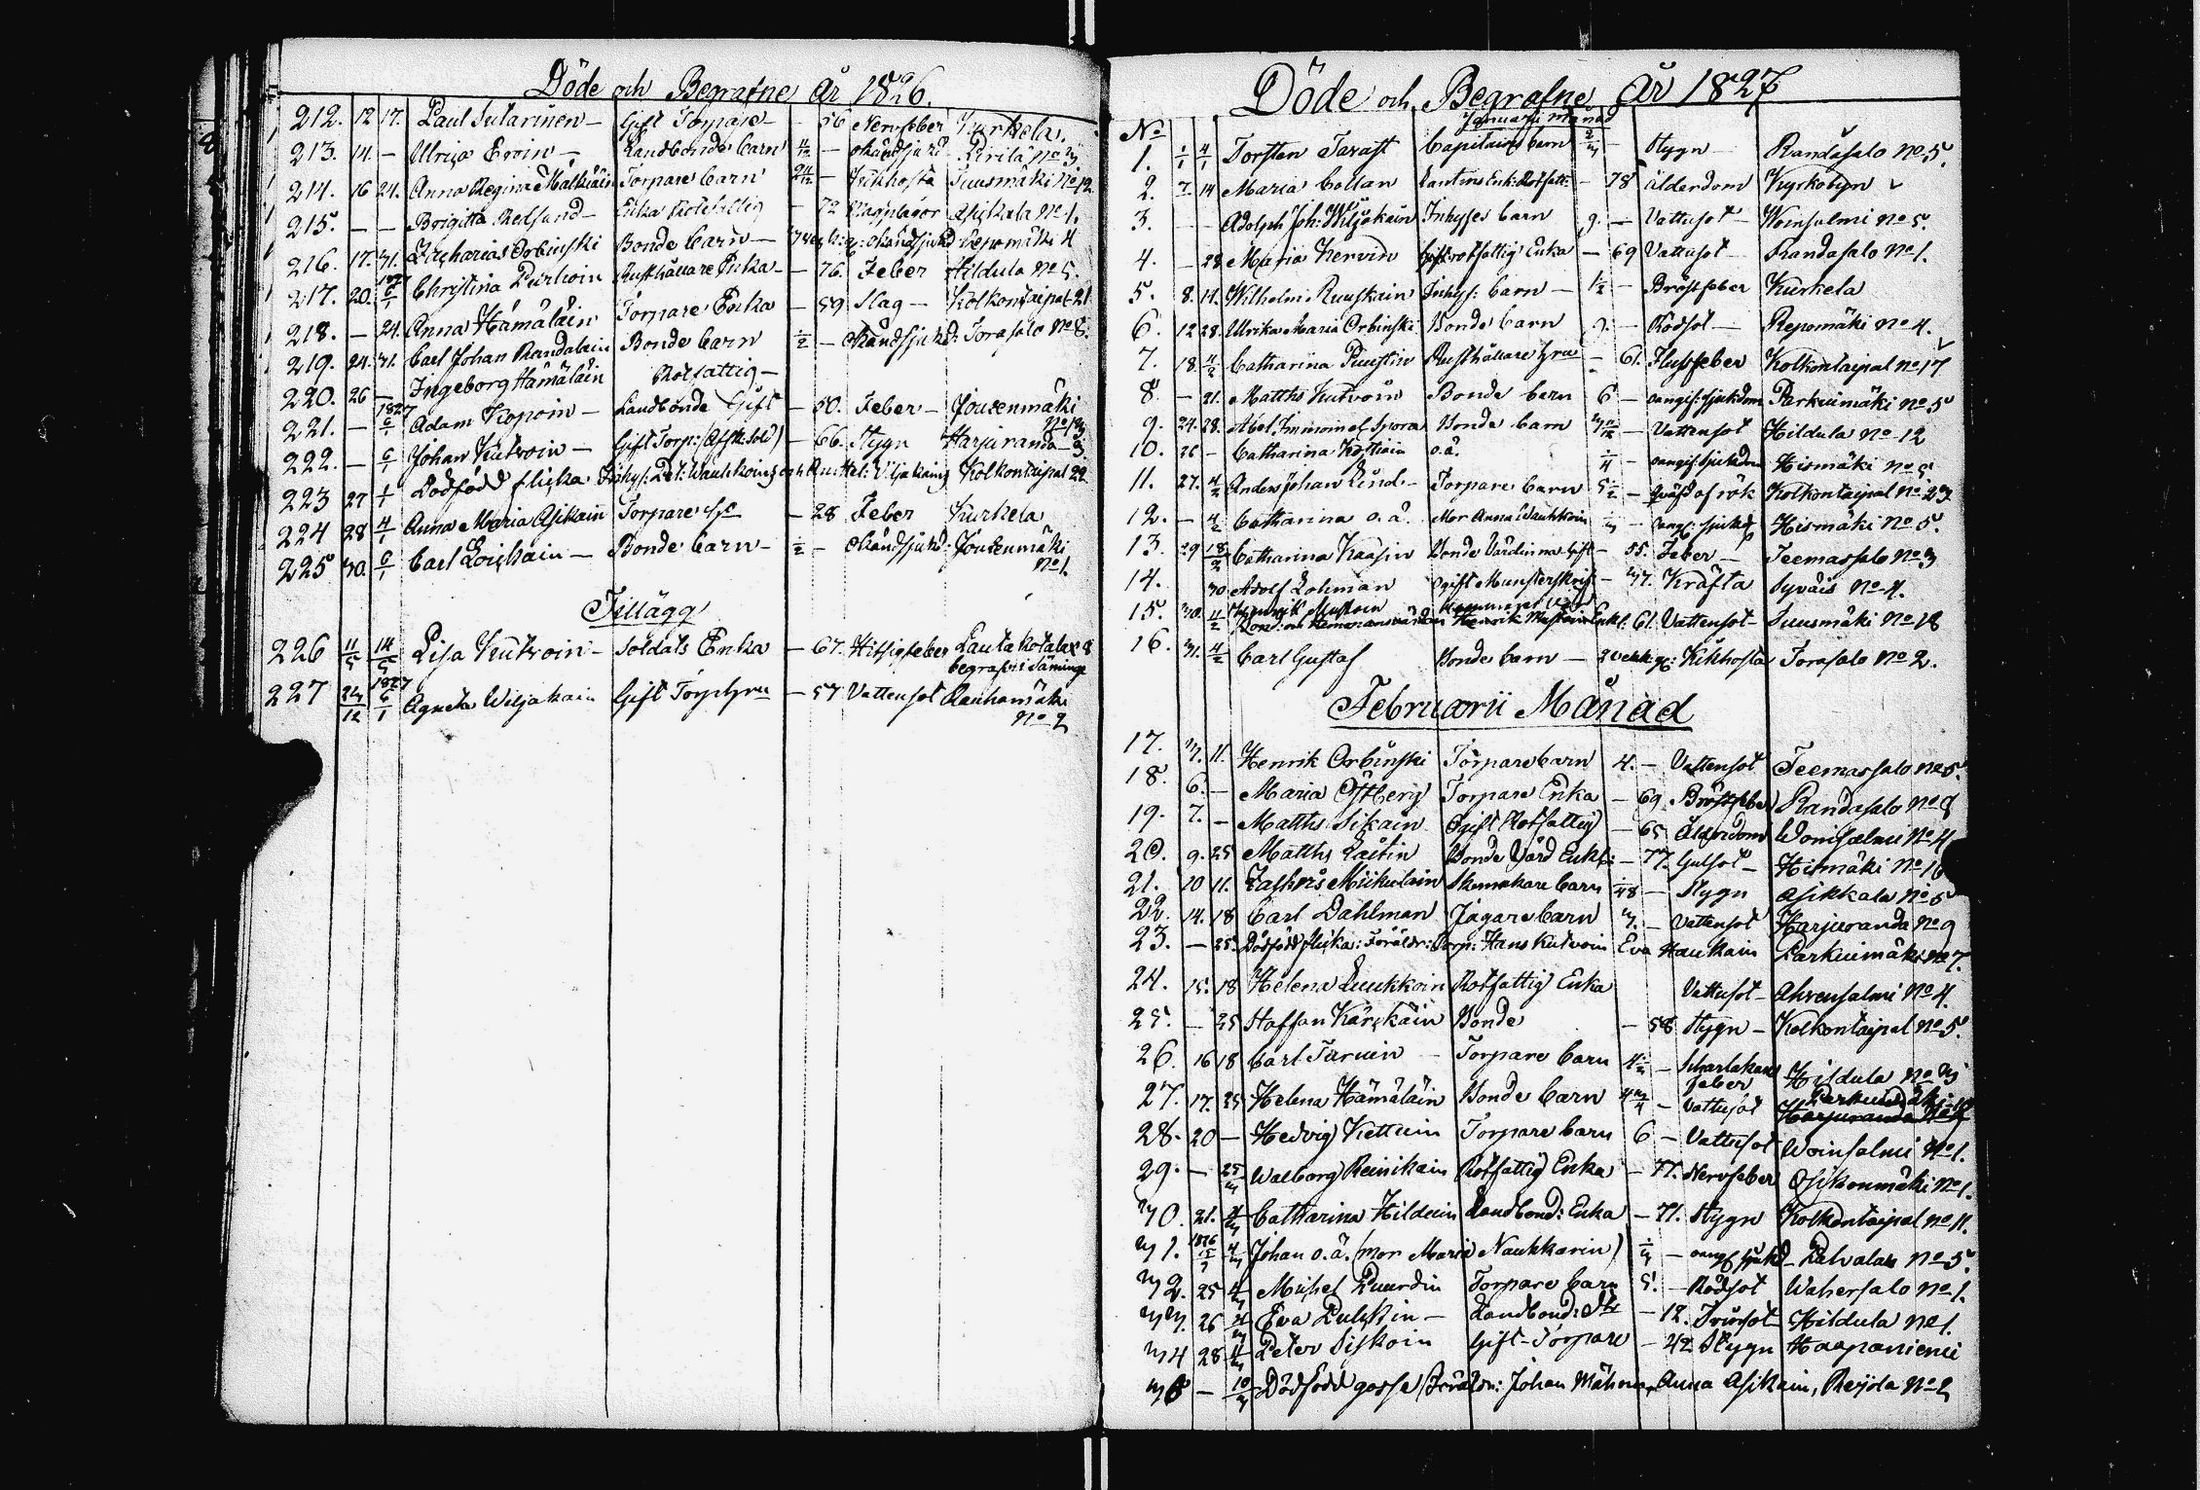 Döde och Begrafne år 1826.
212. 12 17. Paul Sutarinen – Gift Torpare – 56 Nervfeber Kurkela.
213. 14. – Ulrica Ervin – Landbonde barn 4/12 – okändsjukd Pirilä No 3.
214. 16 24. Anna Regina Malkiäin Torpare barn 2 4/12 – Kikhosta Suusmäki No 12
215. – – Brigitta Relfund – Enka Rotefattig – 72 Asikala No 1.
216. 17. 31. Zacharias Orbinski Bonde barn – okändsjukd Repomäki 4
217. 20. 1827 6/1 Christina Rusthållare Enka – – 76. Feber Hildula No 5.
218. – 24. Anna Hämäläin Torpare Enka – 59 Slag – Kolkontaipal 21
219. 24. 31. Carl Johan Randalain Bonde barn 1/2 – okändsjukd: Torasalo No 8.
220. 26 – Ingeborg Hämäläin Rotfattig –
221. – 1827 6/1 Adam Kopoin – Landbonde Gift – 50. Feber – Joutenmäki No 13
222. – 6/1 Johan Kutvoin – Gift Torp: (Afsk: Sold) – 66. Stygn Harjuranda – 9.
223 27 1/1 Dödfödd flicka Inhys: Kolkontaipal 22
224 28 4/1 Anna Maria Asikain Torpare – 28 Feber Kurkela
225 30. 6/1 Carl Loikkain – Bonde barn – 1/2 – okändsjukd: Joutenmäki No 1.
Tillägg
226 11/5 14/5 Lisa Kutvoin – Soldats Enka – 67. Hitsigfeber Lautakotalax 8
begrafvi Säminge
227 24/12 1827 6/1 Agneta Wiljakain Gift Torp hru – 57 Vattusot Rauhamäki No 2
Döde och Begrafne År 1827
Januarii Månad
No
1. 1/1 4/1 Torsten Tavast Capitains barn 2/3 – Stygn Randasalo No 5.
2. 7. 14 Maria Collan Enk: Rotfatt: – 78 ålderdom Kyrkobyn
3. – – Adolph Joh: Wiljakain Inhyses barn 9. – Vattusot – Woinsalmi No 5.
4. – 28 Maria Kervin rotfattig Enka – 69 Vattusot – Randasalo No 1.
5. 8. 14. Wilhelm Ruuskain Inhys: barn – 1/2 – Bröstfeber Kurkela
6. 12 28. Ulrika Maria Orbinski Bonde barn 9. – Rödsot – Repomäki No 4.
7. 18. 4/2 Catharina Puustin Rusthållare hru – 61. Flussfeber Kolkontaipal No 17
8. – 21. Matths Kutvoin Bonde barn 6 – oangif: sjukdom Parkuimäki No 5
9. 24. 28. Abel Immanuel Spora Bonde barn – Vattusot Hildula No 12
10. 26 – Catharina o.ä. 1/4 – oangif: sjukdom Hismäki No 5.
11. 27. 4/2 Anders Johan Lind – Torpare barn 5 1/2 – qväfd af rök Kolkontaipal No 23
12. – 4/2 Catharina o.ä. Mor Anna Waukkoin – oangf: sjukd: Hismäki No 5.
13. 29 18/2 Catharina Kaasin Bonde Värdinna Gift – 55. Feber – Teemassalo No 3
14. 30 Adolf Lohman ogift Munsterskrif – 37. Kräfta Syväis No 4.
15. 30. 11/2 Enkl: 61. Vattusot – Suusmäki No 18
16. 31. 4/2 Carl Gustaf Bonde barn – 2 veck: g: Kikhosta Torasalo No 2.
Februarii Månad
17. 3. 11. Henrik Orbinski Torpare barn 4. – Vattusot Teemassalo No 5.
18. 6. – Maria Östberg Torpare Enka – 69 Bröstfeber Randasalo No 8
19. 7. – Matths Sikain ogift Rotfattig – 65 Ålderdom Woinsalmi No 4
20. 9. 25 Matths Laitin Bonde Värd Enkl: – 77. Gulsot – Hismäki No 16
21. 10 11. Zachris Miikulain Skomakare barn 1/48 – Stygn Asikkala No 5
22. 14. 18 Carl Dahlman Jägare barn 3. – Vattusot Harjuranda No 9
23. – 25. Dödfödd flicka: Föräldr: Torp: Hans Kutvoin Eva Haukain Parkuimäki No 7.
24. 15. 18 Helena Luukkoin Rotfattig Enka Vattusot – Ahvensalmi No 4.
25. – 25 Staffan Kärkäin Bonde – 58 Stygn – Kolkontaipal No 5.
26. 16 18 Carl Tarvin – Torpare barn 4 1/2 – Scharlakans feber Hildula No 3
27. 17. 25 Helena Hämäläin Bonde barn 4 3/4 – Vattusot Parkuimäki Harjuranda No 8
28. 20 – Hedvig Kettuin Torpare barn 6 – Vattusot Woinsalmi No 1.
29. – 25/3 Walborg Reinikain Rotfattig Enka – 77. Nervfeber Osikonmäki No 1.
30. 21. 4/3 Catharina Hilduin Landbond: Enka – 71. Stygn Kolkontaipal No 11.
31. 1826 4/3 Johan o.ä. (mor Maria Naukkarin) 1/3 – oangf sjukd – Pelvalax No 5.
32. 25 4/3 Michel Puurdin Torpare barn 5. – Rödsot Wahersalo No 1.
33. 26 4/3 Eva Pulkkin – Landbond: dtr – 12. Tvinsot Hildula No 1.
34 28 11/3 Peter Siskoin Gift – Torpare – 42 Stygn Haapaniemi
35 – 10/3 Dödfödd gosse Föräldr: Johan Anna Asikain, Reijola No 2